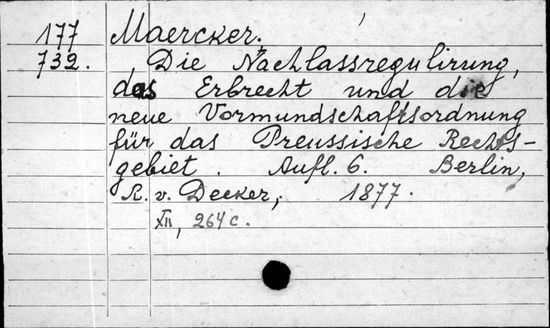 177 Maercker.
732. Die Nachlassregulirung,
das Erbrecht und die
neue Vormundschaftsordnung
für das Preussische Rechts-
gebiet. Aufl. 6. Berlin,
R. v. Decker, 1877.
XII, 264 c.